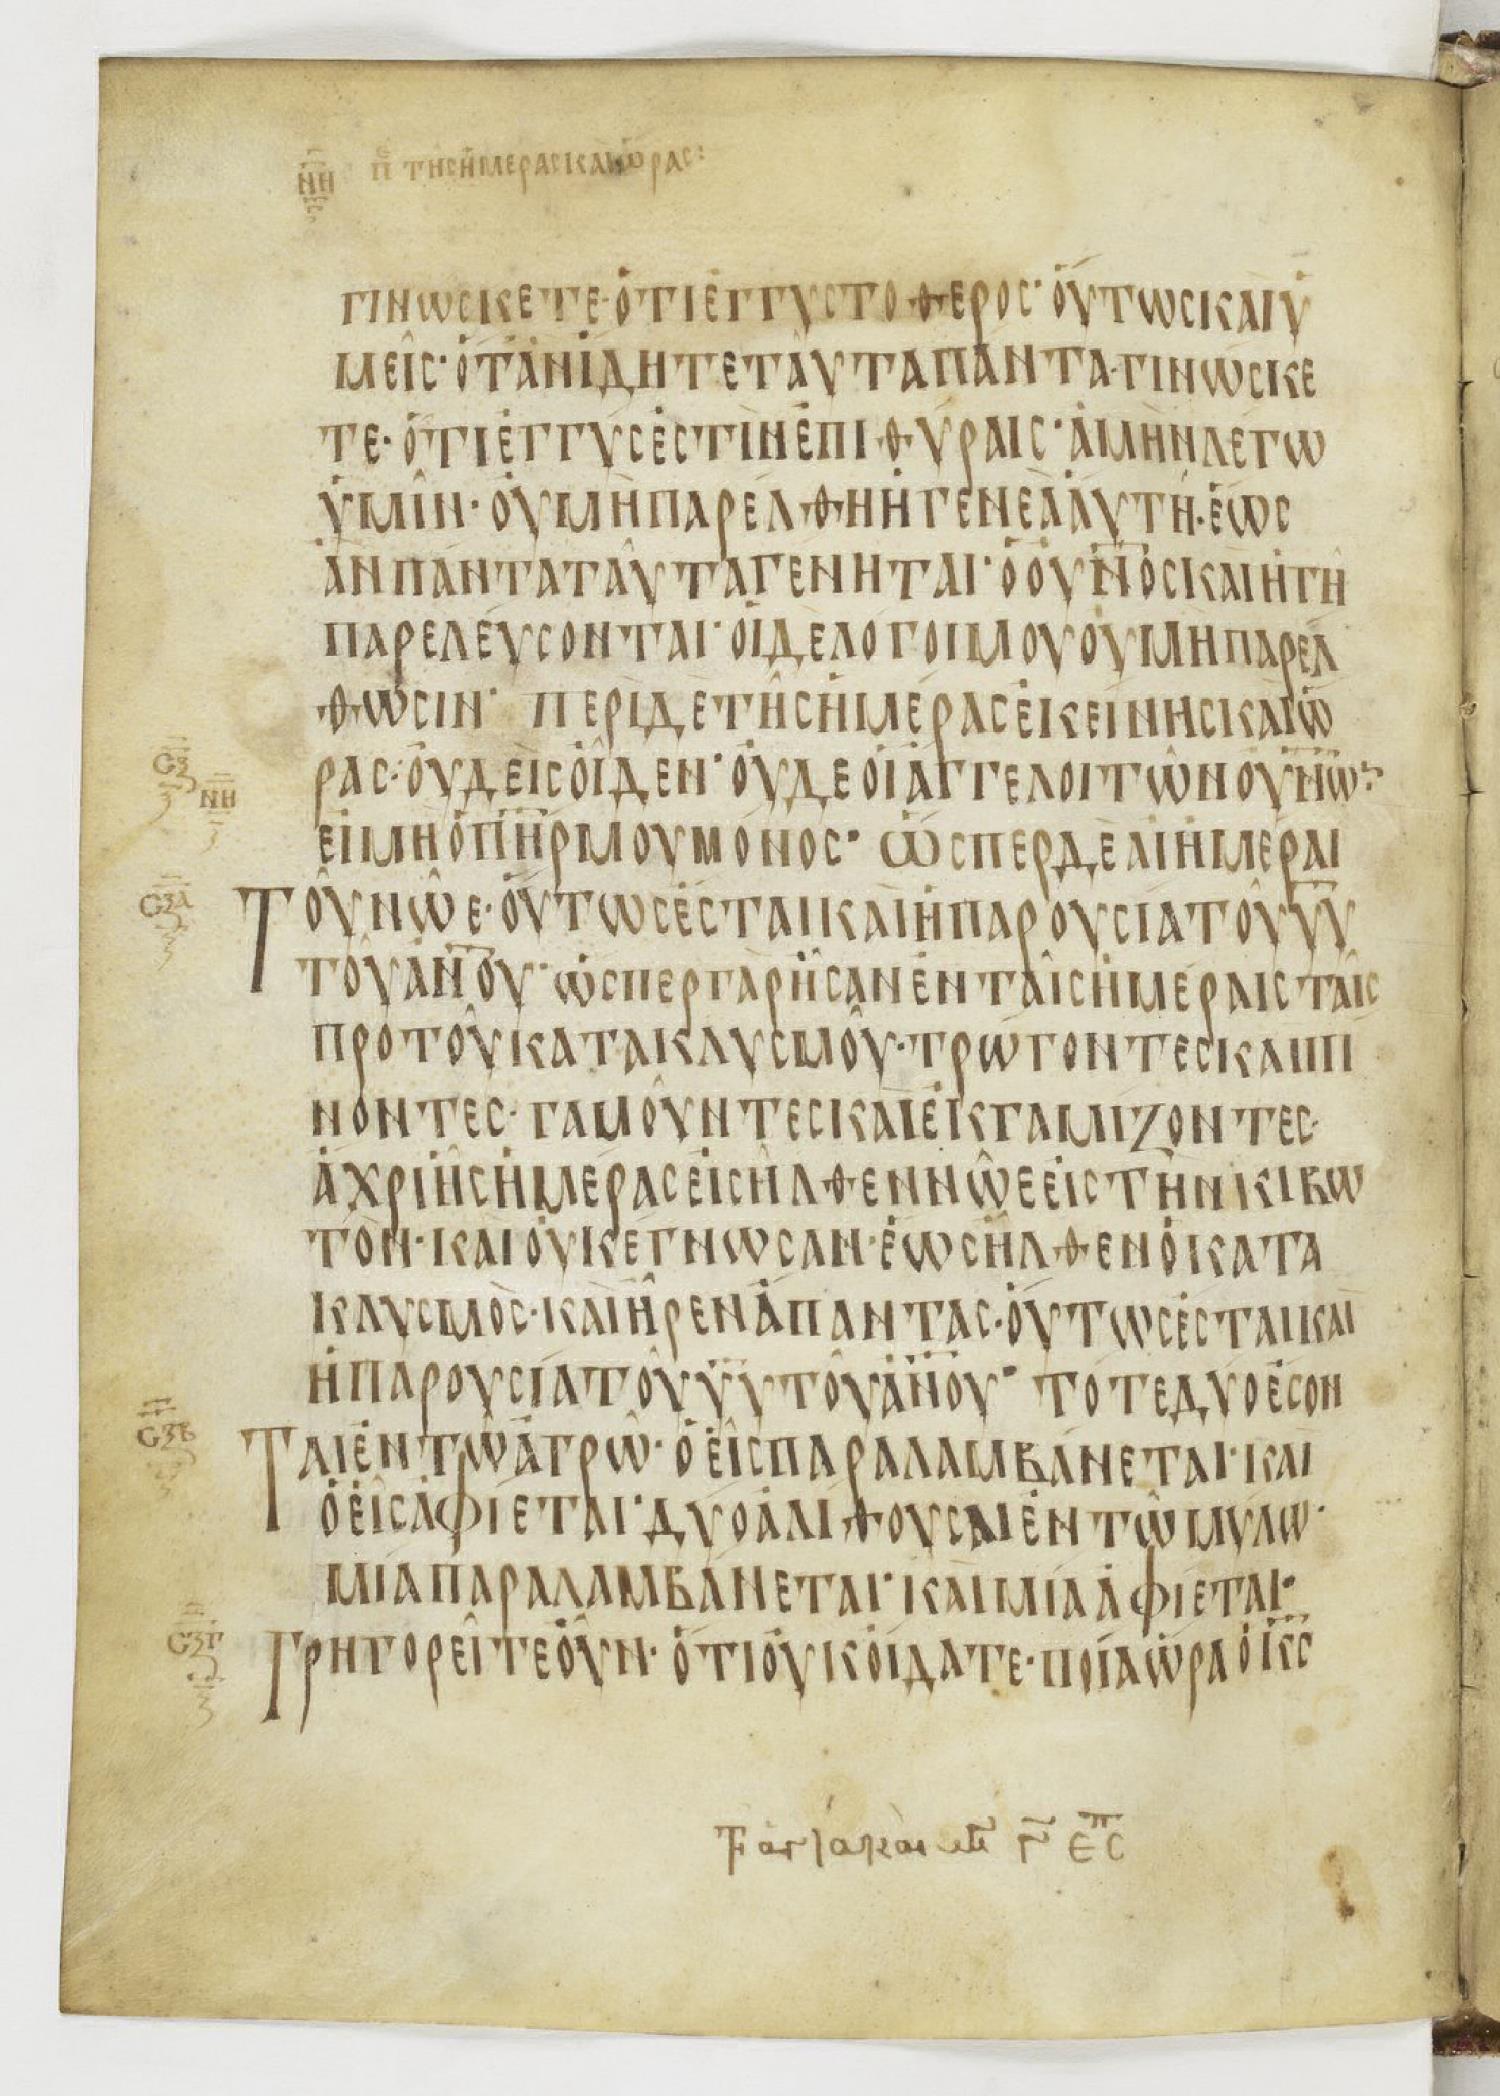 ΝΗ ΠΕ ΤΗς ἩΜΕΡΑς ΚΑΙ ὩΡΑς:
ΓΙΝΩςΚΕΤΕ· ὍΤΙ ἘΓΓΥς ΤΟ ΘΕΡΟς· ὍΥΤΩς ΚΑΙ Ὑ
ΜΕΙ͂ς· ὍΤΑΝ ἸΔΗΤΕ ΤΑΥ͂ΤΑ ΠΑΝΤΑ· ΓΙΝΩςΚΕ
ΤΕ· ὍΤΙ ἘΓΓΥς ἘςΤΙΝ ἘΠΙ ΘΥΡΑΙς· ἈΜΗΝ ΛΕΓΩ
ὙΜΙ͂Ν· ΟΥ̓ ΜΗ ΠΑΡΕΛΘΗ Ἡ ΓΕΝΕΑ ἈΥΤΗ· ἝΩς
ἈΝ ΠΑΝΤΑ ΤΑΥ͂ΤΑ ΓΕΝΗΤΑΙ· Ὁ ΟΥΝΟς ΚΑΙ Ἡ ΓΗ͂
ΠΑΡΕΛΕΥςΟΝΤΑΙ· ΟἹ ΔΕ ΛΟΓΟΙ ΜΟΥ ΟΥ̓ ΜΗ ΠΑΡΕΛ
ΘΩςΙΝ· ΠΕΡΙ ΔΕ ΤΗ͂ς ἩΜΕΡΑς ἘΚΕΙΝΗς ΚΑΙ Ὡ
ΡΑς· ΟΥ̓ΔΕΙς ΟἾΔΕΝ· ΟΥ̓ΔΕ ΟἹ ἈΓΓΕΛΟΙ ΤΩ͂Ν ΟΥΝΩ͂:
ΕἸ ΜΗ Ὁ ΠΗΡ ΜΟΥ ΜΟΝΟς· ὩςΠΕΡ ΔΕ ΑἹ ἩΜΕΡΑΙ
ΤΟΥ͂ ΝΩ͂Ε· ΟὝΤΩς ἘςΤΑΙ ΚΑΙ Ἡ ΠΑΡΟΥςΙΑ ΤΟΥ͂ ΥΥ
ΤΟΥ͂ ἈΝΟΥ· ὩςΠΕΡ ΓΑΡ ἨςΑΝ ἘΝ ΤΑΙ͂ς ἩΜΕΡΑΙς ΤΑΙ͂ς
ΠΡΟ ΤΟΥ͂ ΚΑΤΑΚΛΥςΜΟΥ͂· ΤΡΩΓΟΝΤΕς ΚΑΙ ΠΙ
ΝΟΝΤΕς· ΓΑΜΟΥ͂ΝΤΕς ΚΑΙ ἘΚΓΑΜΙΖΟΝΤΕς·
ἈΧΡΙ Ἧς ἩΜΕΡΑς ΕἸςΗ͂ΛΘΕΝ ΝΩ͂Ε ΕἸς ΤΗΝ ΚΙΒΩ
ΤΟΝ· ΚΑΙ ΟΥ̓Κ ἘΓΝΩςΑΝ· ἝΩς ἨΛΘΕΝ Ὁ ΚΑΤΑ
ΚΛΥςΜΟς· ΚΑΙ ἮΡΕΝ ἉΠΑΝΤΑς· ΟὝΤΩς ἘςΤΑΙ ΚΑΙ
Ἡ ΠΑΡΟΥςΙΑ ΤΟΥ͂ ΥΥ ΤΟΥ͂ ἈΝΟΥ· ΤΟΤΕ ΔΥΟ ἘςΟΝ
ΤΑΙ ἘΝ ΤΩ͂ ἈΓΡΩ͂· Ὁ ΕἿς ΠΑΡΑΛΑΜΒΑΝΕΤΑΙ· ΚΑΙ
Ὁ ΕἿς ἈΦΙΕΤΑΙ· ΔΥΟ ἈΛΙΘΟΥςΑΙ ἘΝ ΤΩ͂ ΜΥΛΩ·
ΜΙΑ ΠΑΡΑΛΑΜΒΑΝΕΤΑΙ· ΚΑΙ ΜΙΑ ἈΦΙΕΤΑΙ·
ΓΡΗΓΟΡΕΙ͂ΤΕ ΟΥ̓Ν· ὍΤΙ ΟΥ̓Κ ΟἸΔΑΤΕ· ΠΟΙΑ ὩΡΑ Ὁ Κς